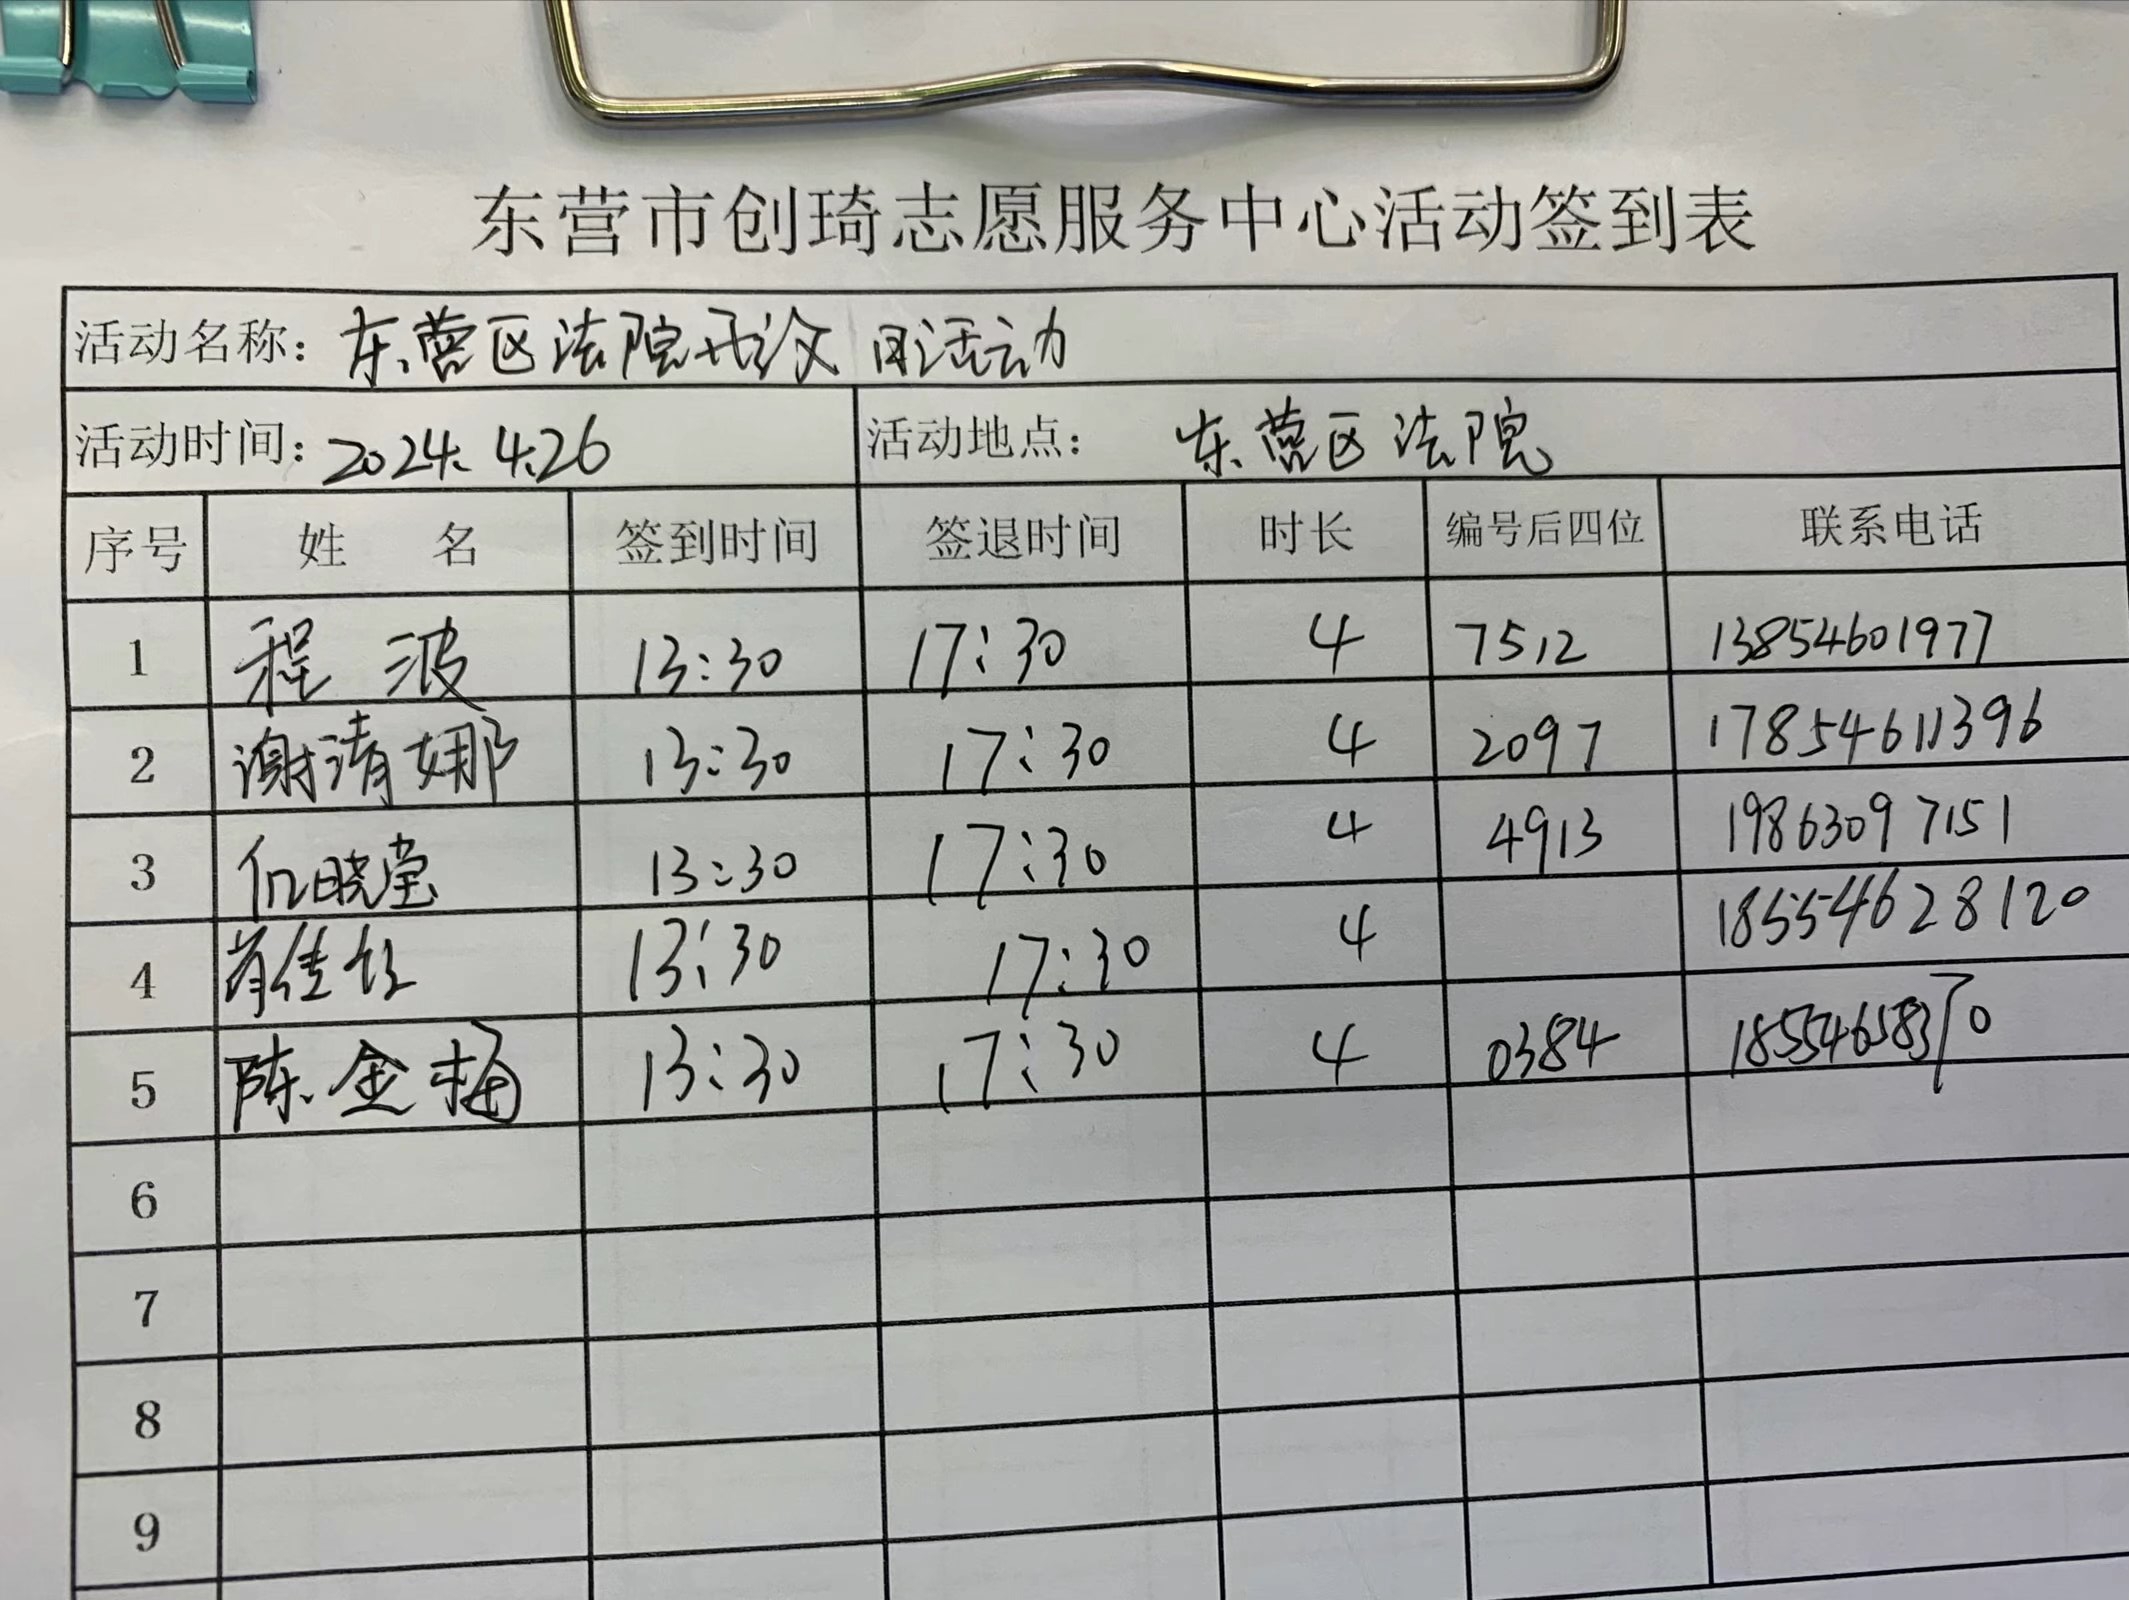 东营市创琦志愿服务中心活动签到表
活动名称: 东营区法院开放日活动
活动时间: 2024.4.26 活动地点: 东营区法院
序号 姓 名 签到时间 签退时间 时长 编号后四位 联系电话
1 程 波 13:30 17:30 4 7512 13854601977
2 谢清娜 13:30 17:30 4 2097 17854611396
3 晓莹 13:30 17:30 4 4913 19863097151
4 肖佳 13:30 17:30 4 18554628120
5 陈金梅 13:30 17:30 4 0384 18554658370
6
7
8
9